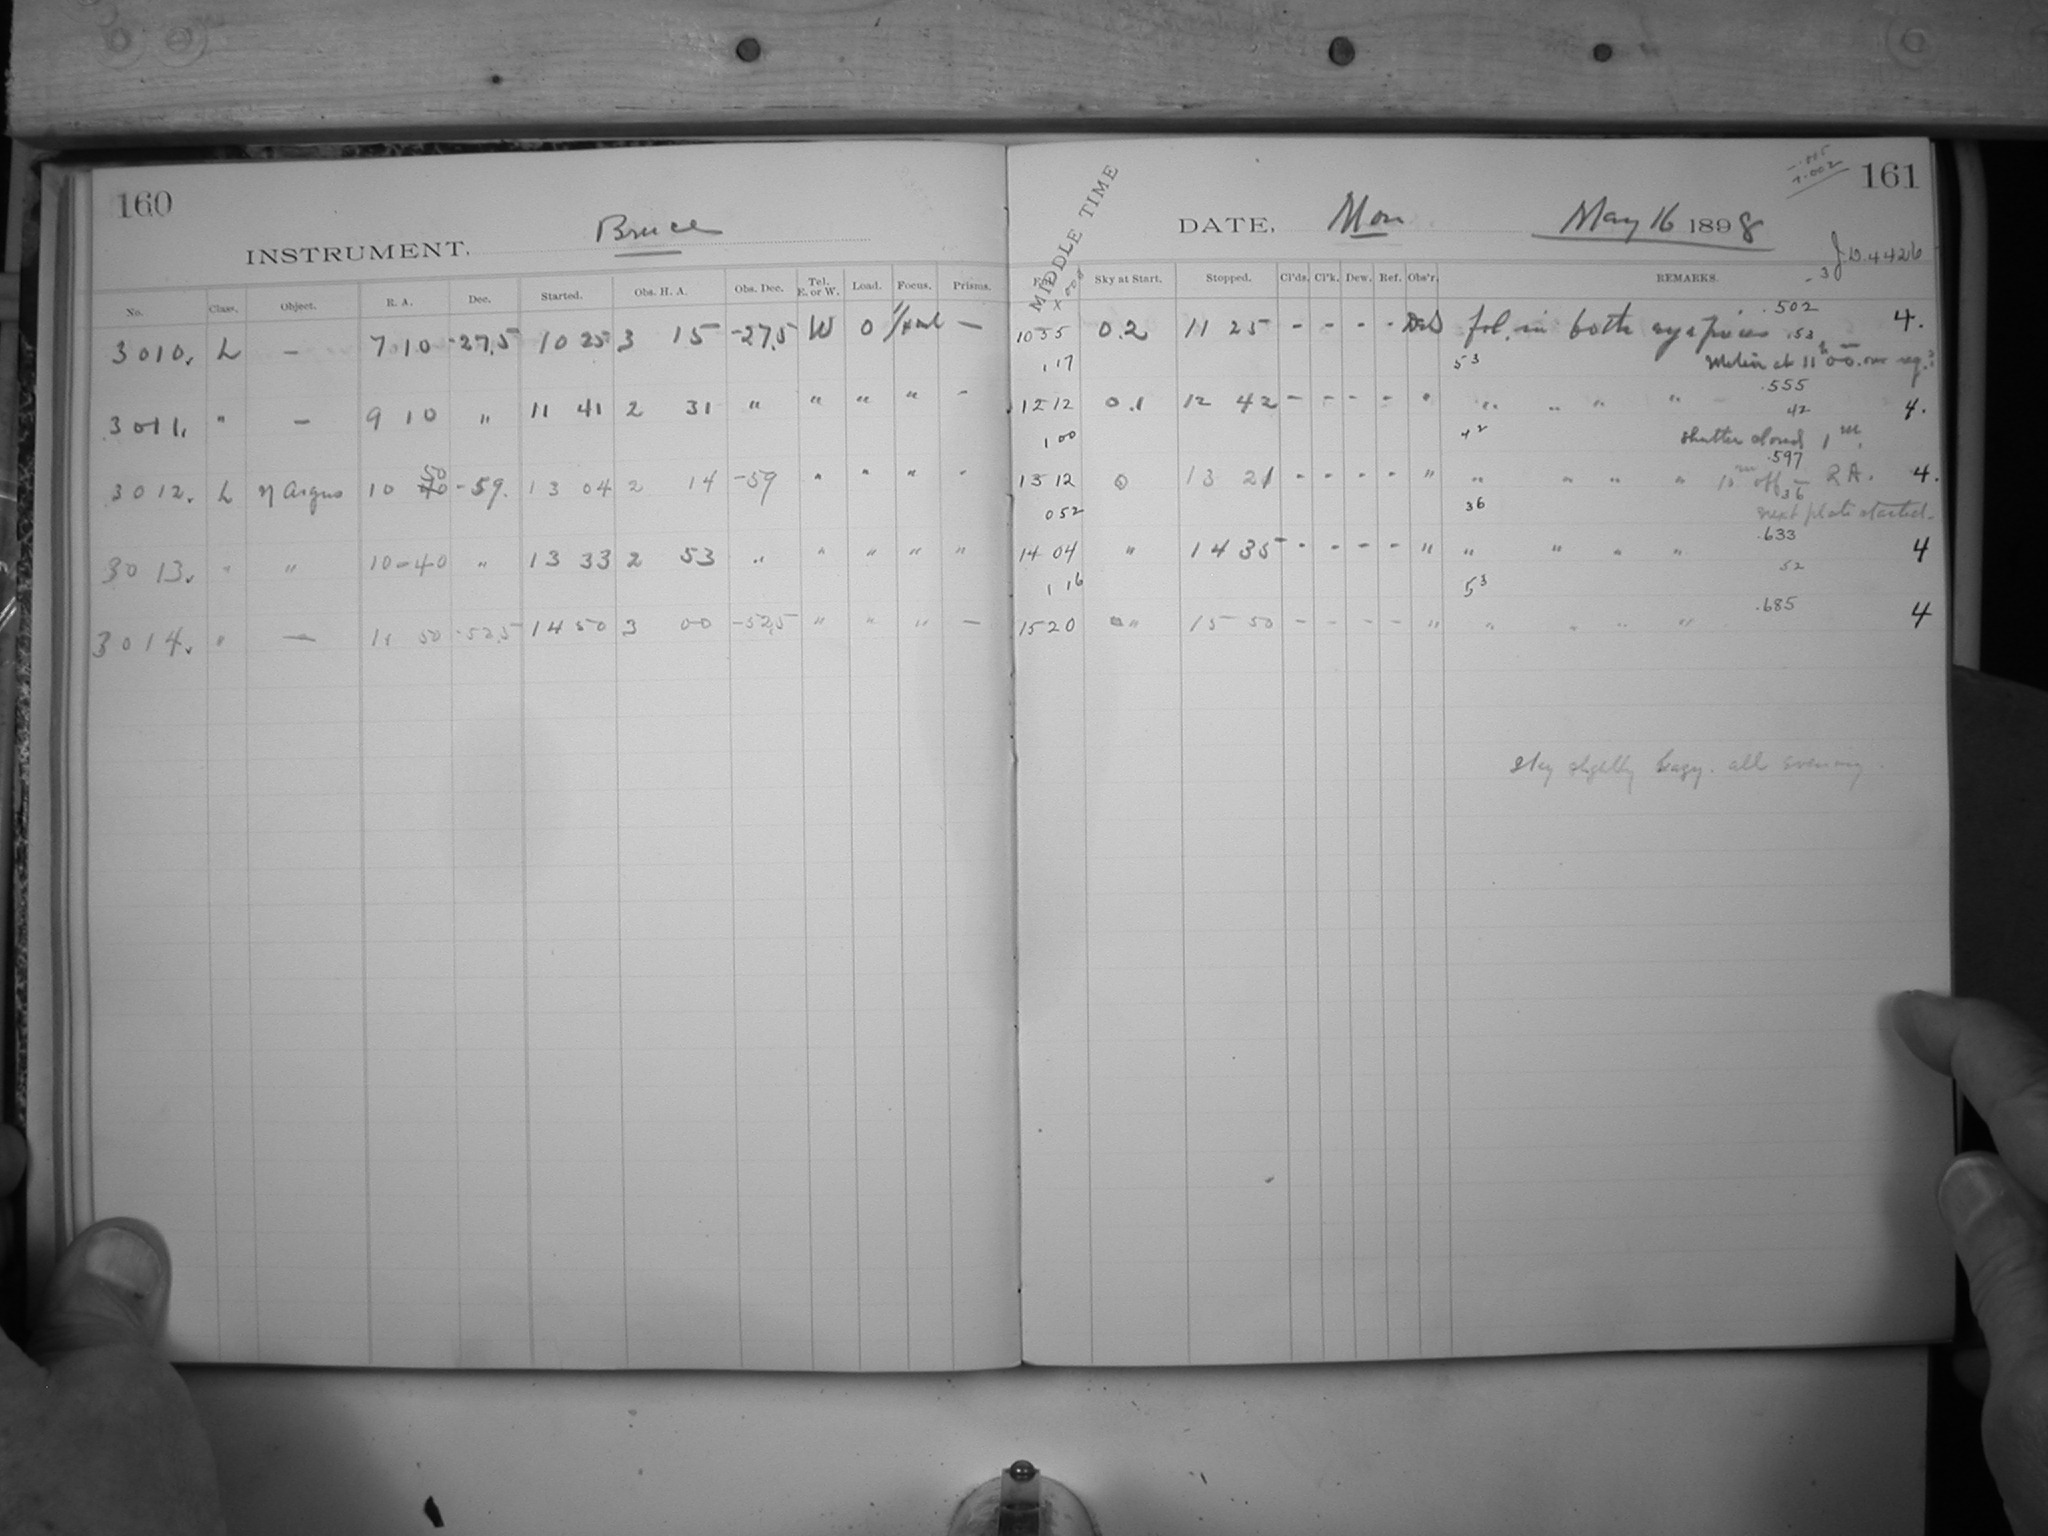 160
INSTRUMENT, Bruce
No. Class. Object. R. A. Dec. Started. Obs. H. A. Obs. Dec. Tel. E. or W. Load. Focus. Prisms.
3010. L — 7 10 -27.5 10 25 3 15 -27.5 W 0 —
3011. " — 9 10 " 11 41 2 31 " " " " -
3012. L η Argus 10 50 40 -59. 13 04 2 14 -59 " " " -
3013. " " 10-40 " 13 33 2 53 " " " " "
3014. " — 11 50 -52.5 14 50 3 00 -52.5 " " " —
161
-.002
MIDDLE TIME
DATE, Mon May 16 1898
J.D. 4426
-3
Sky at Start. Stopped. Cl'ds. Cl'k. Dew. Ref. Obs'r. REMARKS.
1055 0.2 11 25 - - - - fol. in both eyepieces .502 4.
1 17 53 .53 at 11h 00
1212 0.1 12 42 - - - - " " " " " .555 4.
1 00 42 42 Shutter closed 1m.
1312 0 13 21 - - - - " " " " " .597 off R A. 4.
0 52 36 36 next plate started.
1404 " 14 35 - - - - " " " " " .633 4
1 16 53 52
1520 " 15 50 - - - - " " " " " .685 4
Sky slightly hazy. all evening.